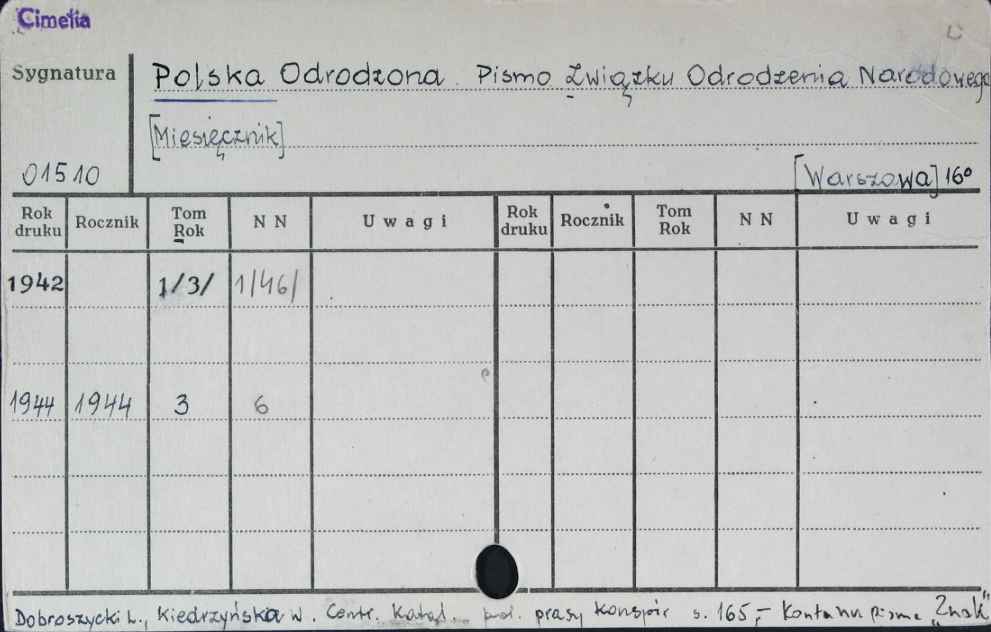 Cimelia
Sygnatura
Polska Odrodzona. Pismo Związku Odrodzenia Narodowego
[Miesięcznik]
01510
[Warszowa] 16°
Rok druku Rocznik Tom Rok NN Uwagi Rok druku Rocznik Tom Rok NN Uwagi
1942 1/3/ 1/46/
1944 1944 3 6
Dobroszycki L., Kiedrzyńska W. Centr. Katal. prasy konspir s. 165,- Kontynu pisma "Znak"